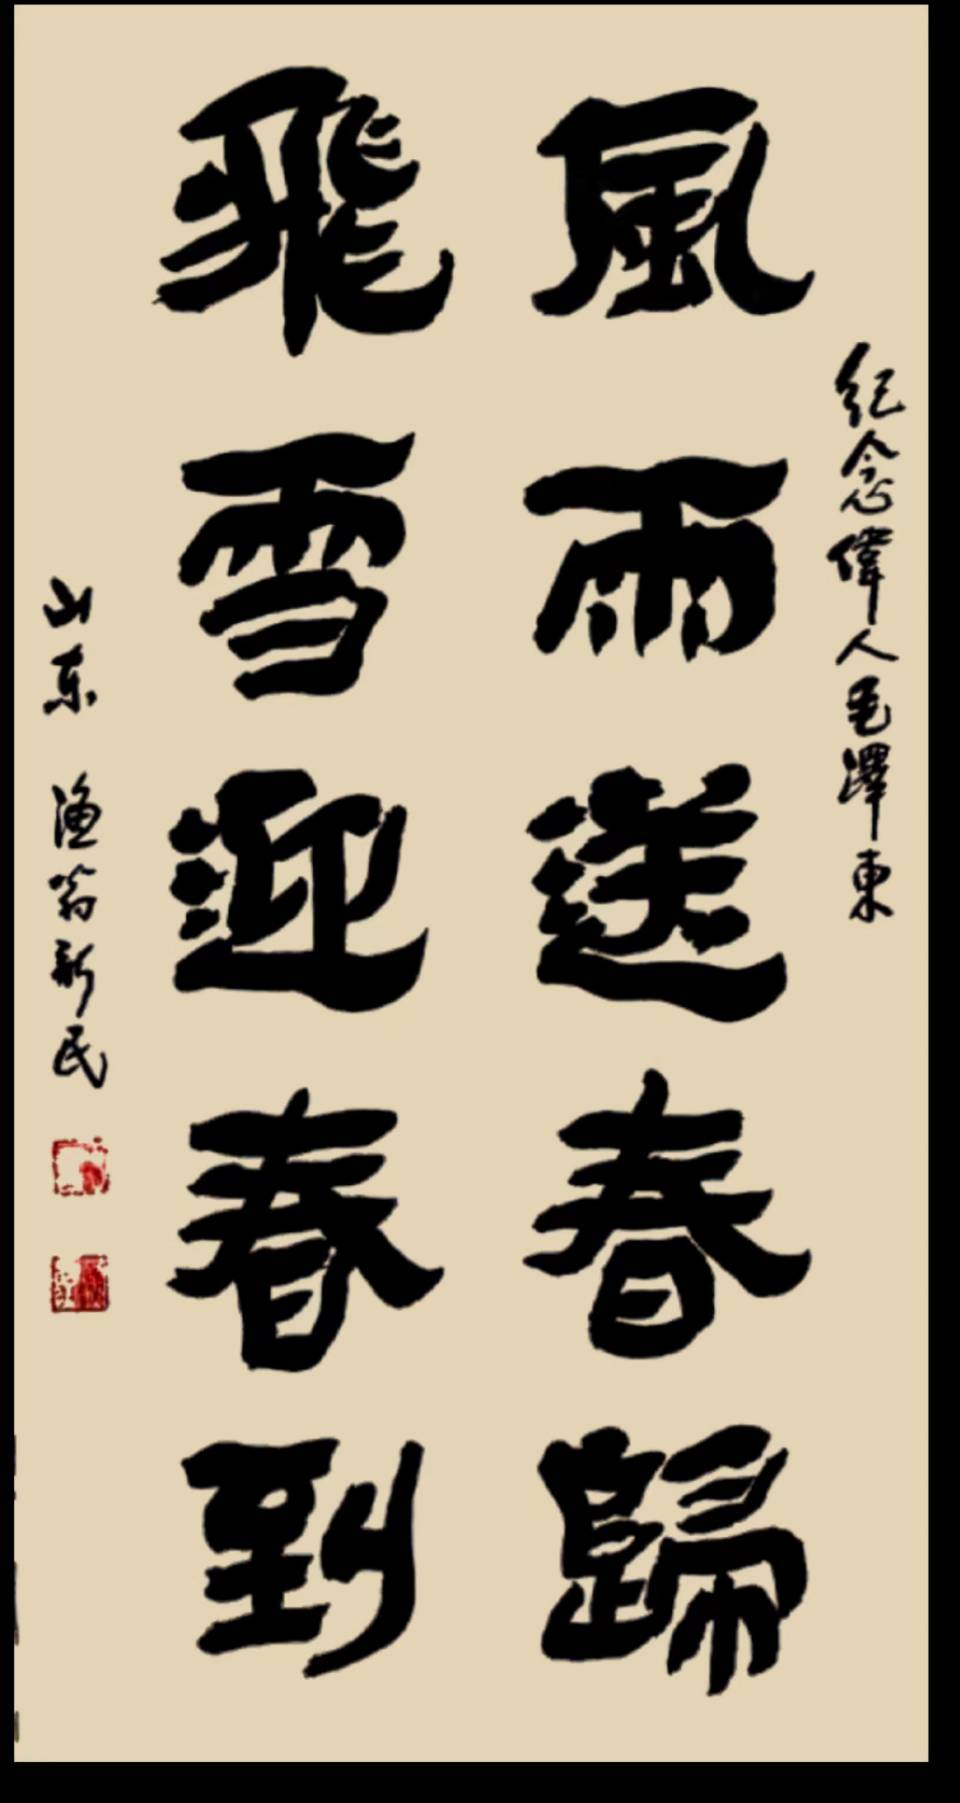 紀念偉人毛澤東
風雨送春歸
飛雪迎春到
山东 渔翁新民